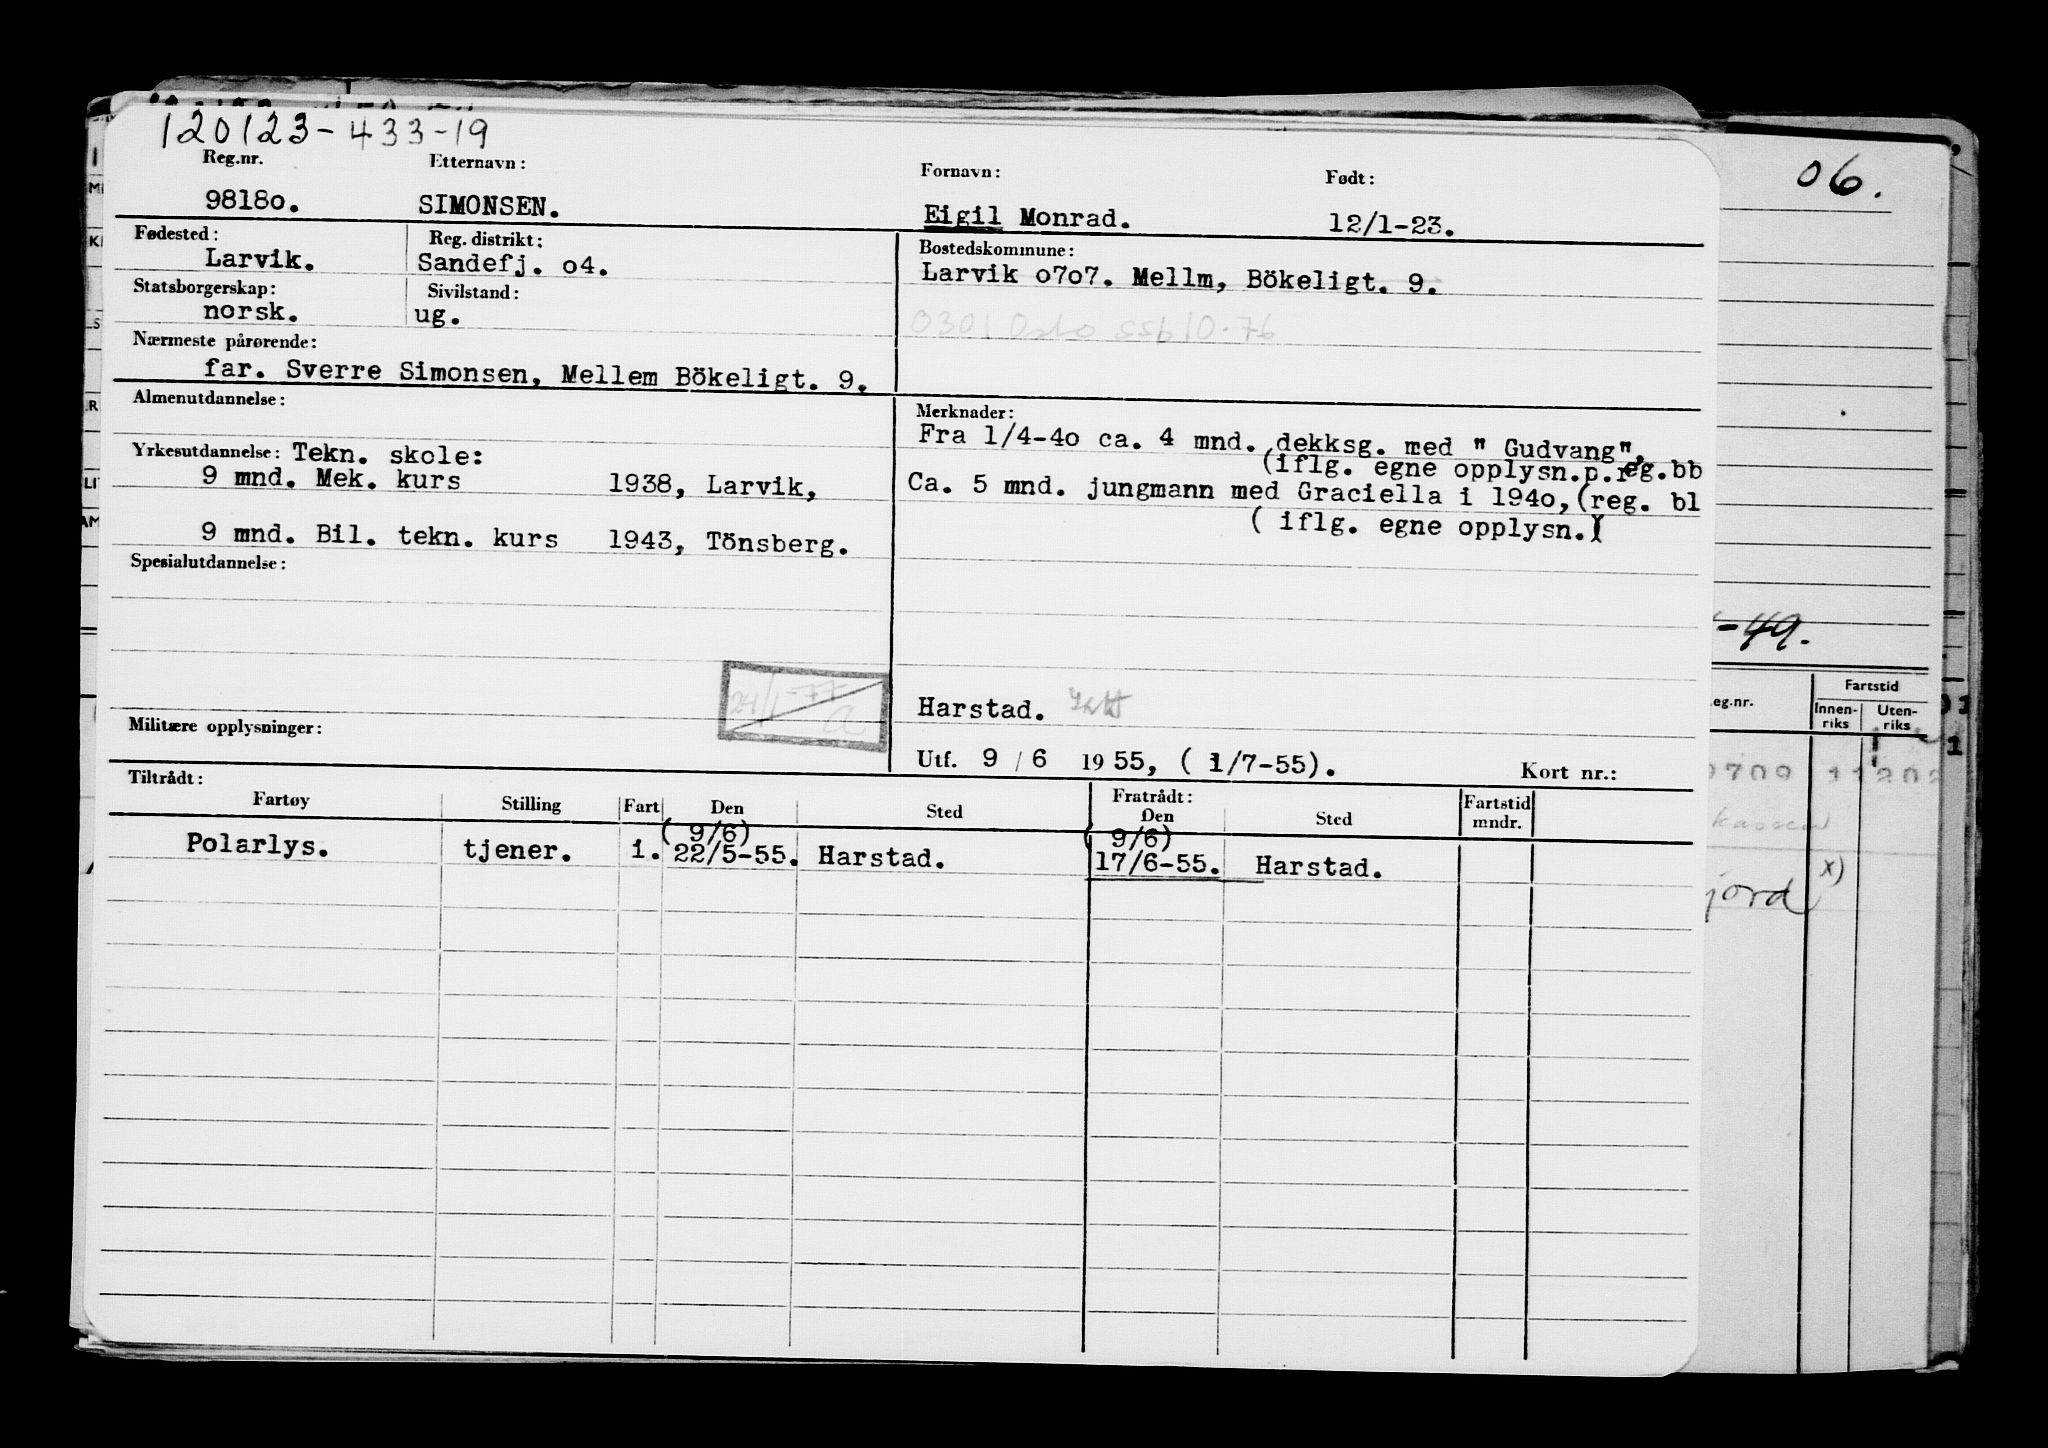 120123-433-19
Reg.nr. Etternavn: Fornavn: Født:
98180. SIMONSEN. Eigil Monrad. 12/1-23.
Fødested: Reg. distrikt: Bostedskommune:
Larvik. Sandefj. o4. Larvik o7o7. Mellm, Bökeligt. 9.
Statsborgerskap: Sivilstand:
norsk. ug. 0301 Oslo ssb 10-76
Nærmeste pårørende:
far. Sverre Simonsen, Mellem Bökeligt. 9.
Almenutdannelse: Merknader:
Fra 1/4-4o ca. 4 mnd. dekksg. med " Gudvang",
Yrkesutdannelse: Tekn. skole: (iflg. egne opplysn.p.reg.bb
9 mnd. Mek. kurs 1938, Larvik, Ca. 5 mnd. jungmann med Graciella i 194o,(reg. bl
9 mnd. Bil. tekn. kurs 1943, Tönsberg. ( iflg. egne opplysn.)
Spesialutdannelse:
24/1-77
Harstad.
Militære opplysninger:
Utf. 9 / 6 1955, ( 1/7-55). Kort nr.:
Tiltrådt: Fratrådt:
Fartøy Stilling Fart Den Sted Den Sted Fartstid mndr.
(9/6) (9/6)
Polarlys. tjener. i. 22/5-55. Harstad. 17/6-55. Harstad.
06.
-49.
eg.nr. Fartstid
Innen-riks Uten-riks
709 11202
kassen
jord x)